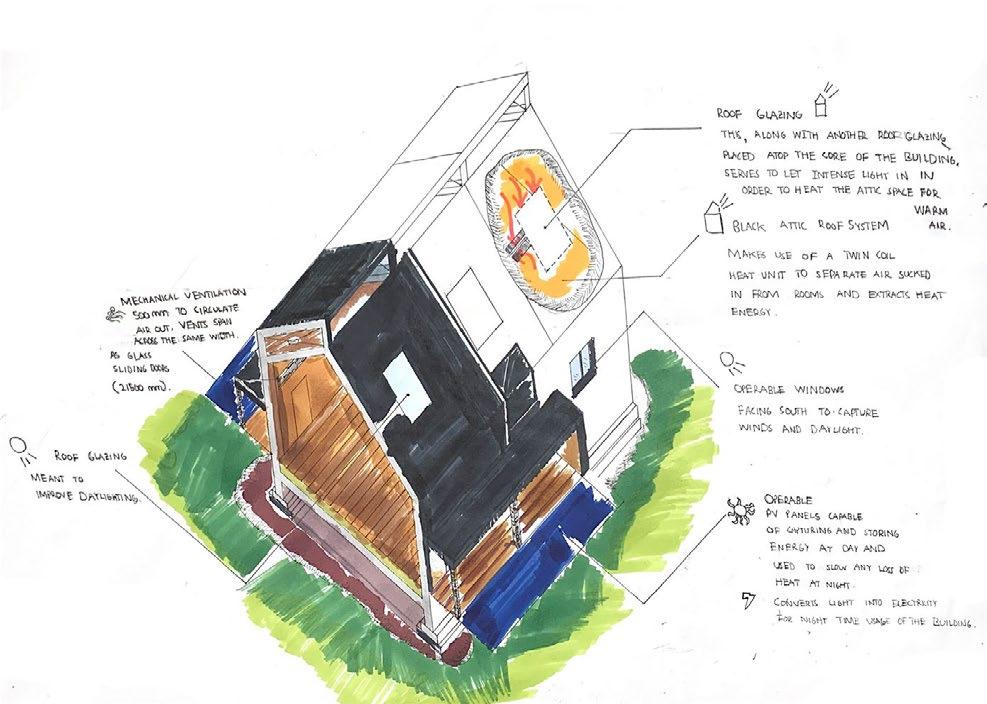 ROOF GLAZING
THIS, ALONG WITH ANOTHER ROOF GLAZING
PLACED ATOP THE CORE OF THE BUILDING,
SERVES TO LET INTENSE LIGHT IN IN
ORDER TO HEAT THE ATTIC SPACE FOR
WARM
AIR.
BLACK ATTIC ROOF SYSTEM
MAKES USE OF A TWIN COIL
HEAT UNIT TO SEPARATE AIR SUCKED
IN FROM ROOMS AND EXTRACTS HEAT
ENERGY.
MECHANICAL VENTILATION
500mm TO CIRCULATE
AIR OUT. VENTS SPAN
ACROSS THE SAME WIDTH.
AS GLASS
SLIDING DOORS
(21500 mm).
OPERABLE WINDOWS
FACING SOUTH TO CAPTURE
WINDS AND DAYLIGHT.
ROOF GLAZING
MEANT TO
IMPROVE DAYLIGHTING.
OPERABLE
PV PANELS CAPABLE
OF CAPTURING AND STORING
ENERGY AT DAY AND
USED TO SLOW ANY LOSS OF
HEAT AT NIGHT.
CONVERTS LIGHT INTO ELECTRICITY
FOR NIGHT TIME USAGE OF THE BUILDING.